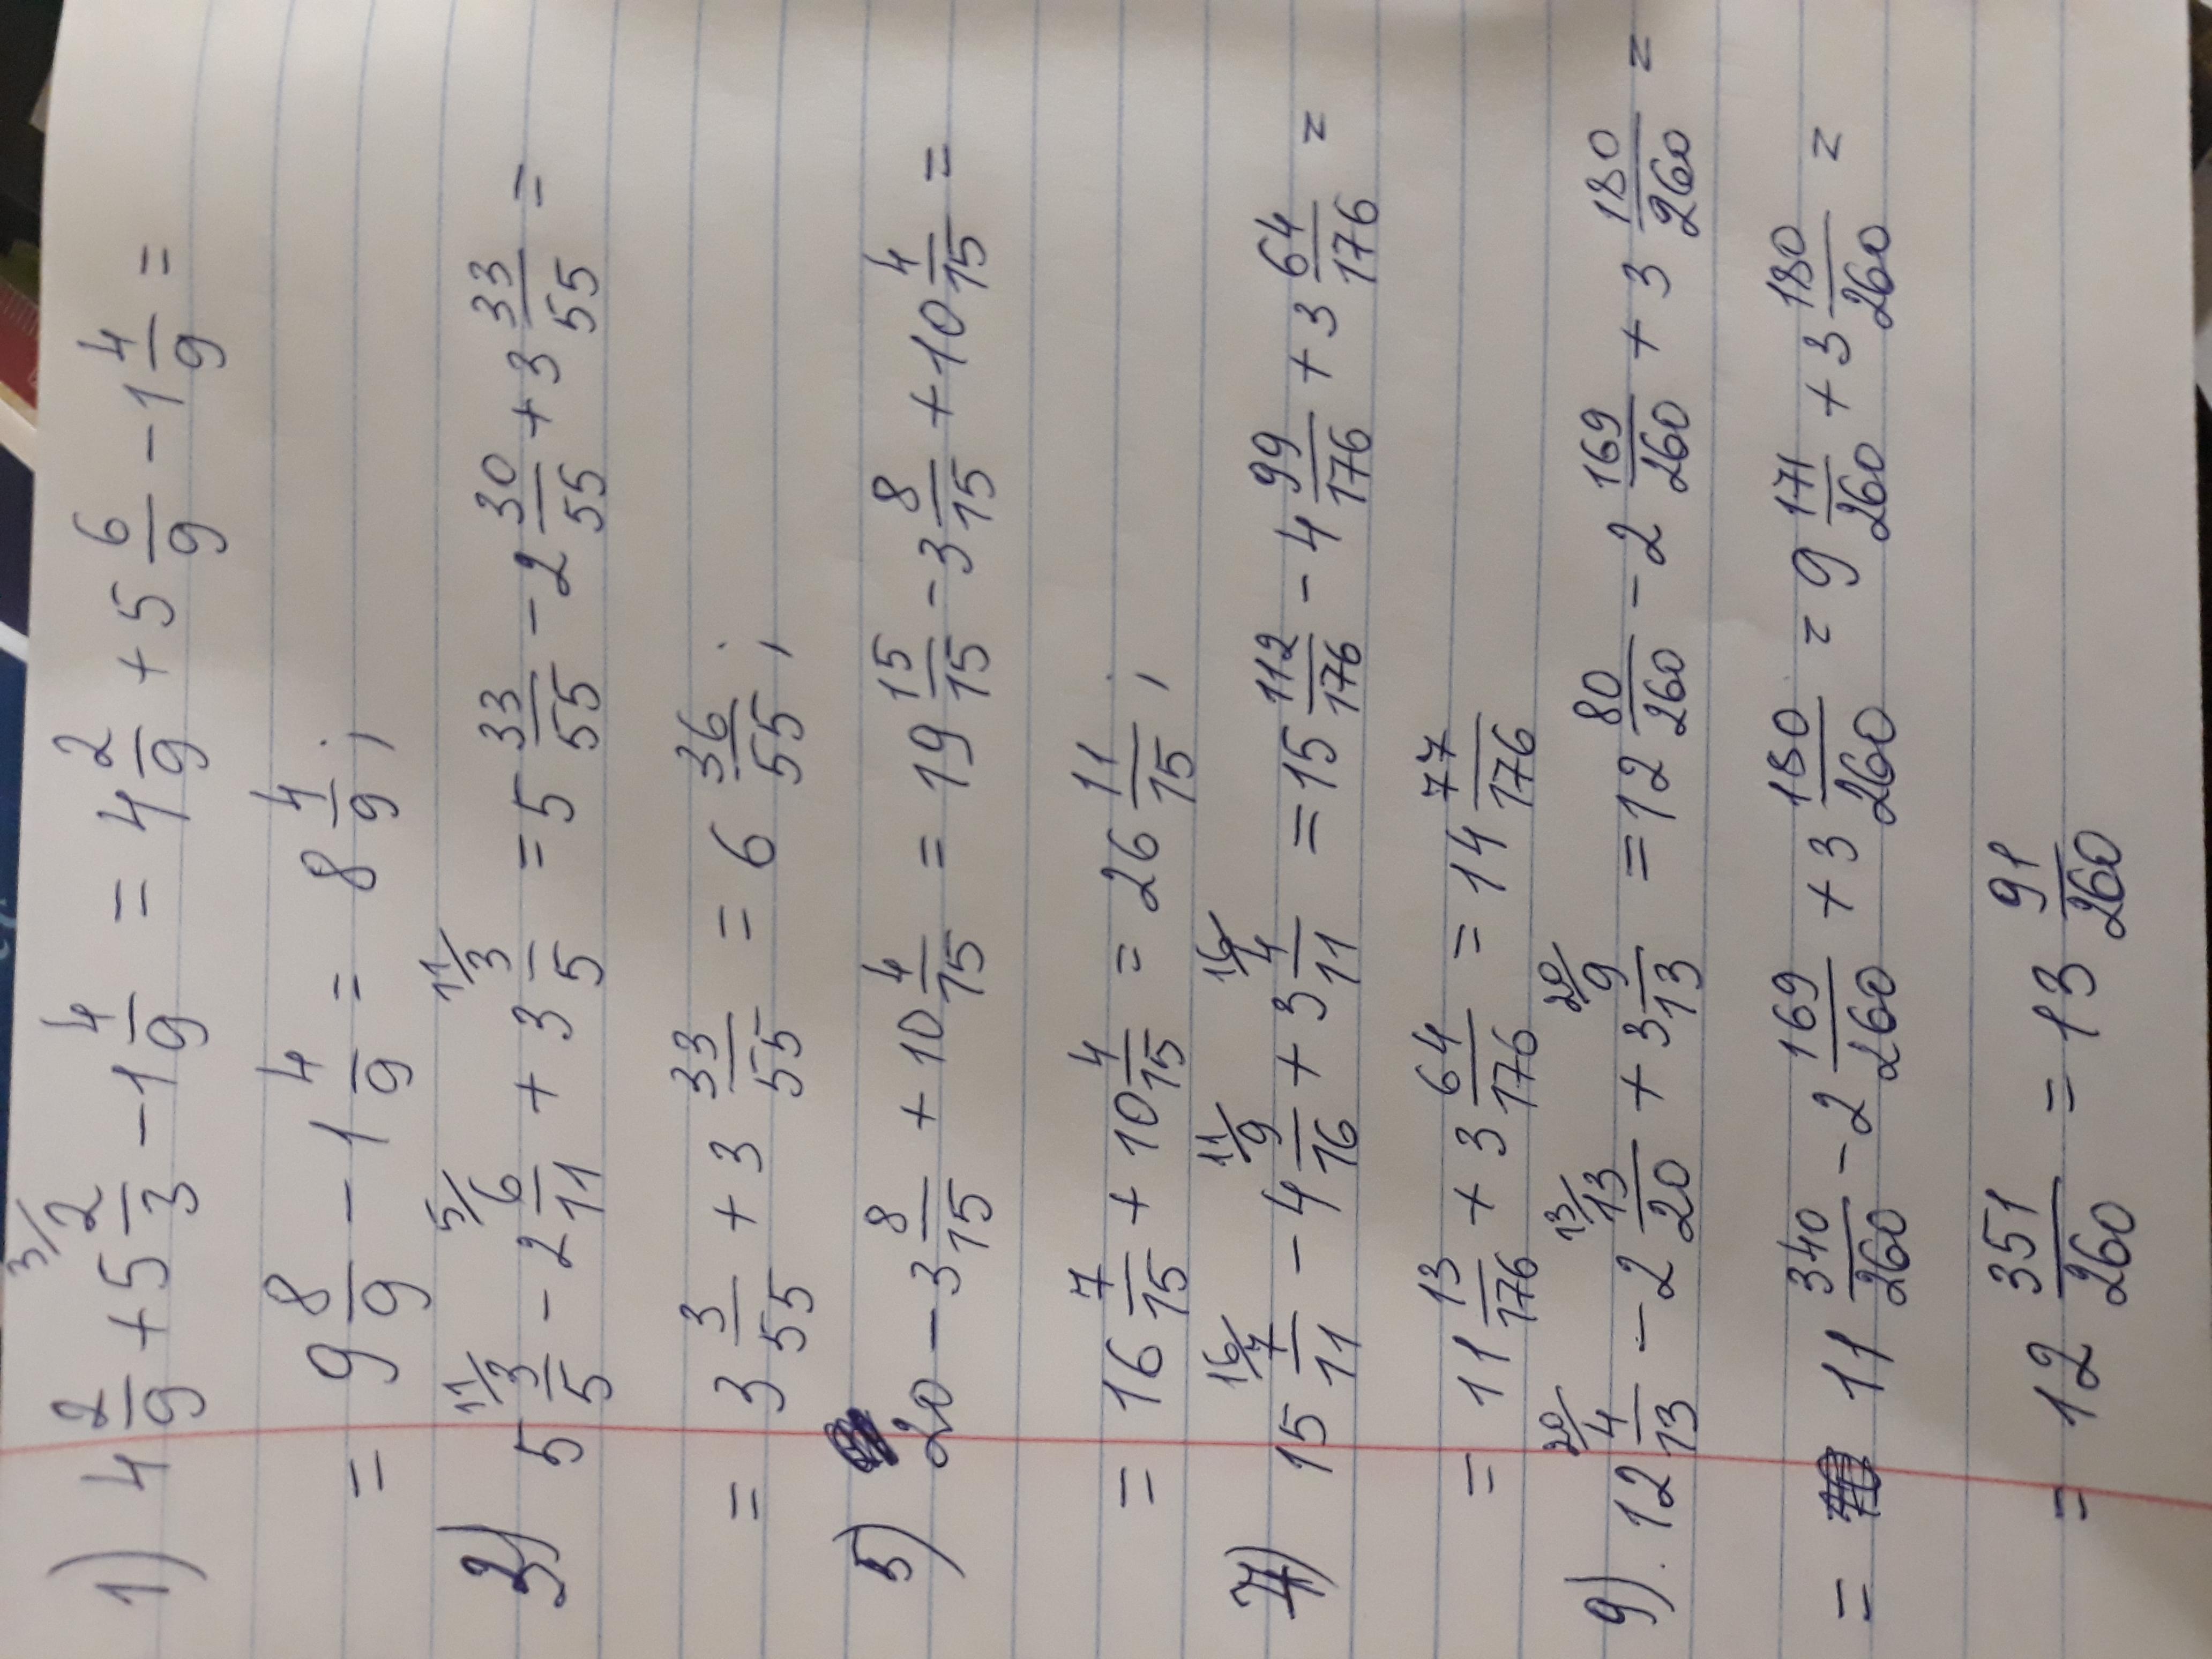 1) 4 2/9 + 5 2/3 (3/) - 1 4/9 = 4 2/9 + 5 6/9 - 1 4/9 =
= 9 8/9 - 1 4/9 = 8 4/9;
3) 5 3/5 (11/) - 2 6/11 (5/) + 3 3/5 (11/) = 5 33/55 - 2 30/55 + 3 33/55 =
= 3 3/55 + 3 33/55 = 6 36/55;
5) 20 - 3 8/15 + 10 4/15 = 19 15/15 - 3 8/15 + 10 4/15 =
= 16 7/15 + 10 4/15 = 26 11/15;
7) 15 7/11 (16/) - 4 9/16 (11/) + 3 4/11 (16/) = 15 112/176 - 4 99/176 + 3 64/176 =
= 11 13/176 + 3 64/176 = 14 77/176
9). 12 4/13 (20/) - 2 13/20 (13/) + 3 9/13 (20/) = 12 80/260 - 2 169/260 + 3 180/260 =
= 11 340/260 - 2 169/260 + 3 180/260 = 9 171/260 + 3 180/260 =
= 12 351/260 = 13 91/260